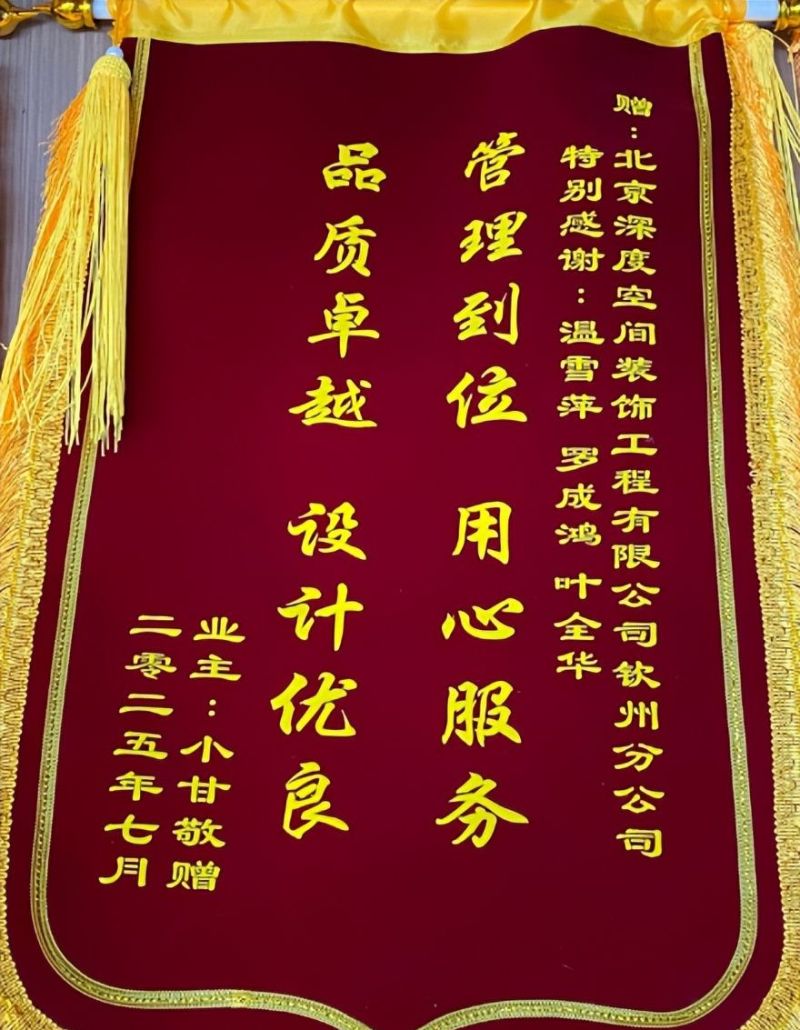 赠：北京深度空间装饰工程有限公司钦州分公司
特别感谢：温雪萍 罗成鸿 叶全华
管理到位 用心服务
品质卓越 设计优良
业主：小甘敬赠
二零二五年七月